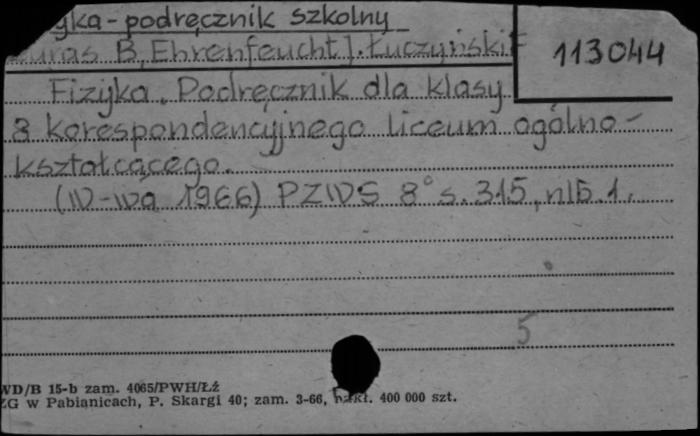 yka - podręcznik szkolny
uras B, Ehrenfeucht J. Łuczyński E
113044
Fizyka. Podręcznik dla klasy
8 korespondencyjnego liceum ogólno-
kształcącego.
(W-wa 1966) PZWS 8° s. 315, nlb. 1.
5
WD/B 15-b zam. 4065/PWH/ŁŻ
ZG w Pabianicach, P. Skargi 40; zam. 3-66, nakł. 400 000 szt.